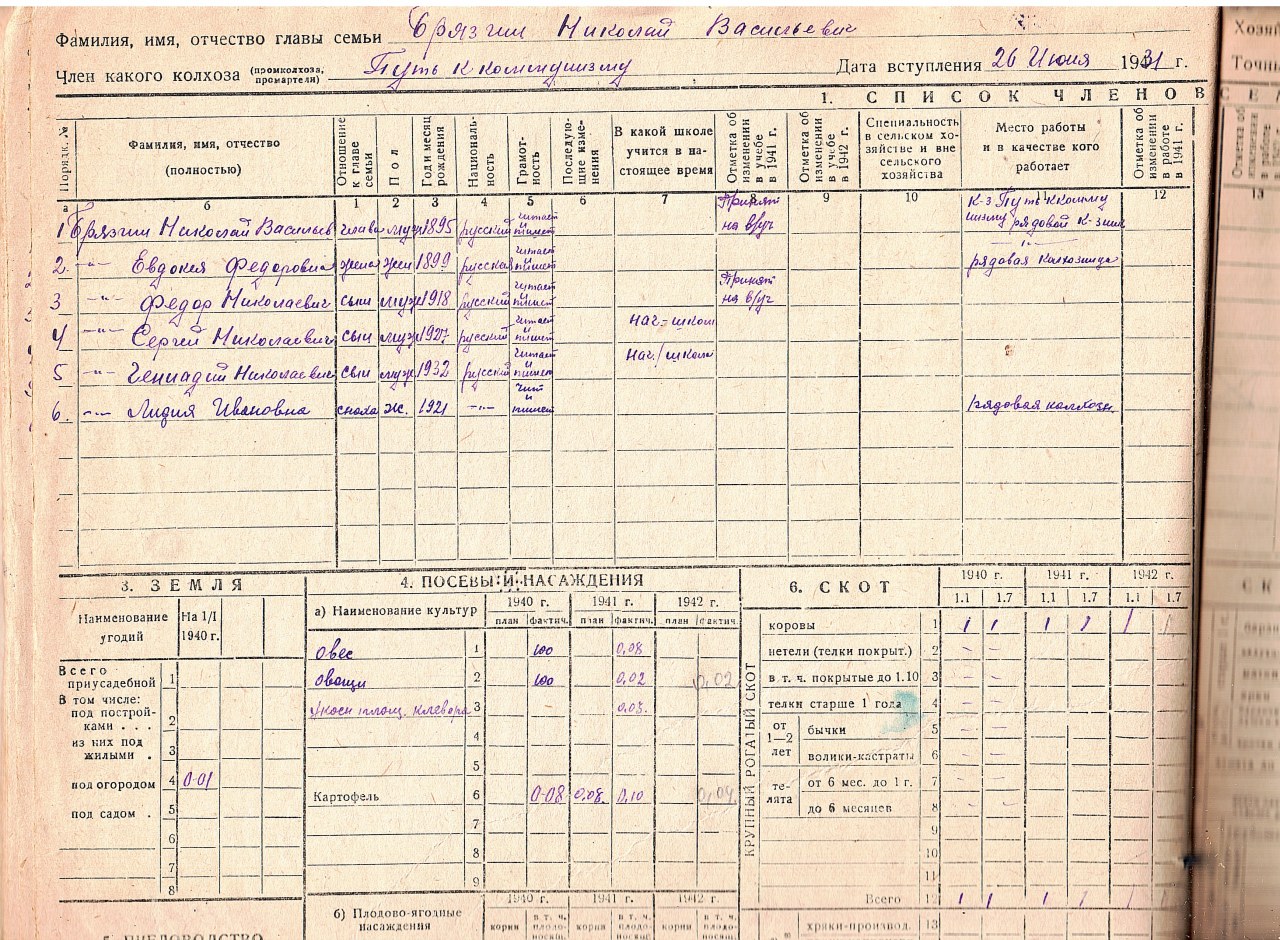 Фамилия, имя, отчество главы семьи Брязгин Николай Васильевич
Член какого колхоза (промколхоза, промартели) Путь к коммунизму Дата вступления 26 Июня 1931 г.
1. СПИСОК ЧЛЕНОВ
Порядк. № Фамилия, имя, отчество (полностью) Отношение к главе семьи Пол Год и месяц рождения Национальность Грамотность Последующие изменения В какой школе учится в настоящее время Отметка об изменении в учебе в 1941 г. Отметка об изменении в учебе в 1942 г. Специальность в сельском хозяйстве и вне сельского хозяйства Место работы и в качестве кого работает Отметка об изменении в работе в 1941 г.
а б 1 2 3 4 5 6 7 8 9 10 11 12 13
1 Брязгин Николай Васильев глава муж 1895 русский читает и пишет Принят на в/уч к-з Путь к комму низму рядовой к-зник
2. -"- Евдокия Федоровна жена жен 1899 русская читает и пишет -"- рядовая колхозница
3 -"- Федор Николаевич сын муж 1918 русский читает и пишет Принят на в/уч
4 -"- Сергей Николаевич сын муж 1927 русский читает и пишет нач-школ
5 -"- Геннадий Николаевич сын муж 1932 русский читает и пишет Нач/школ
6. -"- Лидия Ивановна сноха ж. 1921 -"- чит и пишет рядовая колхозн.
3. ЗЕМЛЯ
Наименование угодий На 1/I 1940 г.
Всего приусадебной 1
В том числе: под постройками . . . 2
из них под жилыми . 3
под огородом 4 0-01
под садом . 5
6
7
8
4. ПОСЕВЫ И НАСАЖДЕНИЯ
а) Наименование культур 1940 г. 1941 г. 1942 г.
план фактич. план фактич. план фактич.
овес 1 100 0,08
овощи 2 100 0,02 0,02
Укосн площ. клевера 3 0,03.
4
5
Картофель 6 0-08 0,08. 0,10 0,04.
7
8
9
б) Плодово-ягодные насаждения 1940 г. 1941 г. 1942 г.
корни в т. ч. плодоносящ. корни в т. ч. плодоносящ. корни в т. ч. плодоносящ.
6. СКОТ 1940 г. 1941 г. 1942 г.
1.1 1.7 1.1 1.7 1.1 1.7
КРУПНЫЙ РОГАТЫЙ СКОТ
коровы 1 1 1 1 1 1 1
нетели (телки покрыт.) 2 - -
в т. ч. покрытые до 1.10 3 - -
телки старше 1 года 4 - -
от 1—2 лет бычки 5 - -
волики-кастраты 6 - -
телята от 6 мес. до 1 г. 7 - -
до 6 месяцев 8 - -
9
10
11
Всего 12 1 1 1 1 1 1
хряки-производ. 13
5. ПЧЕЛОВОДСТВО
Хозяй
Точны